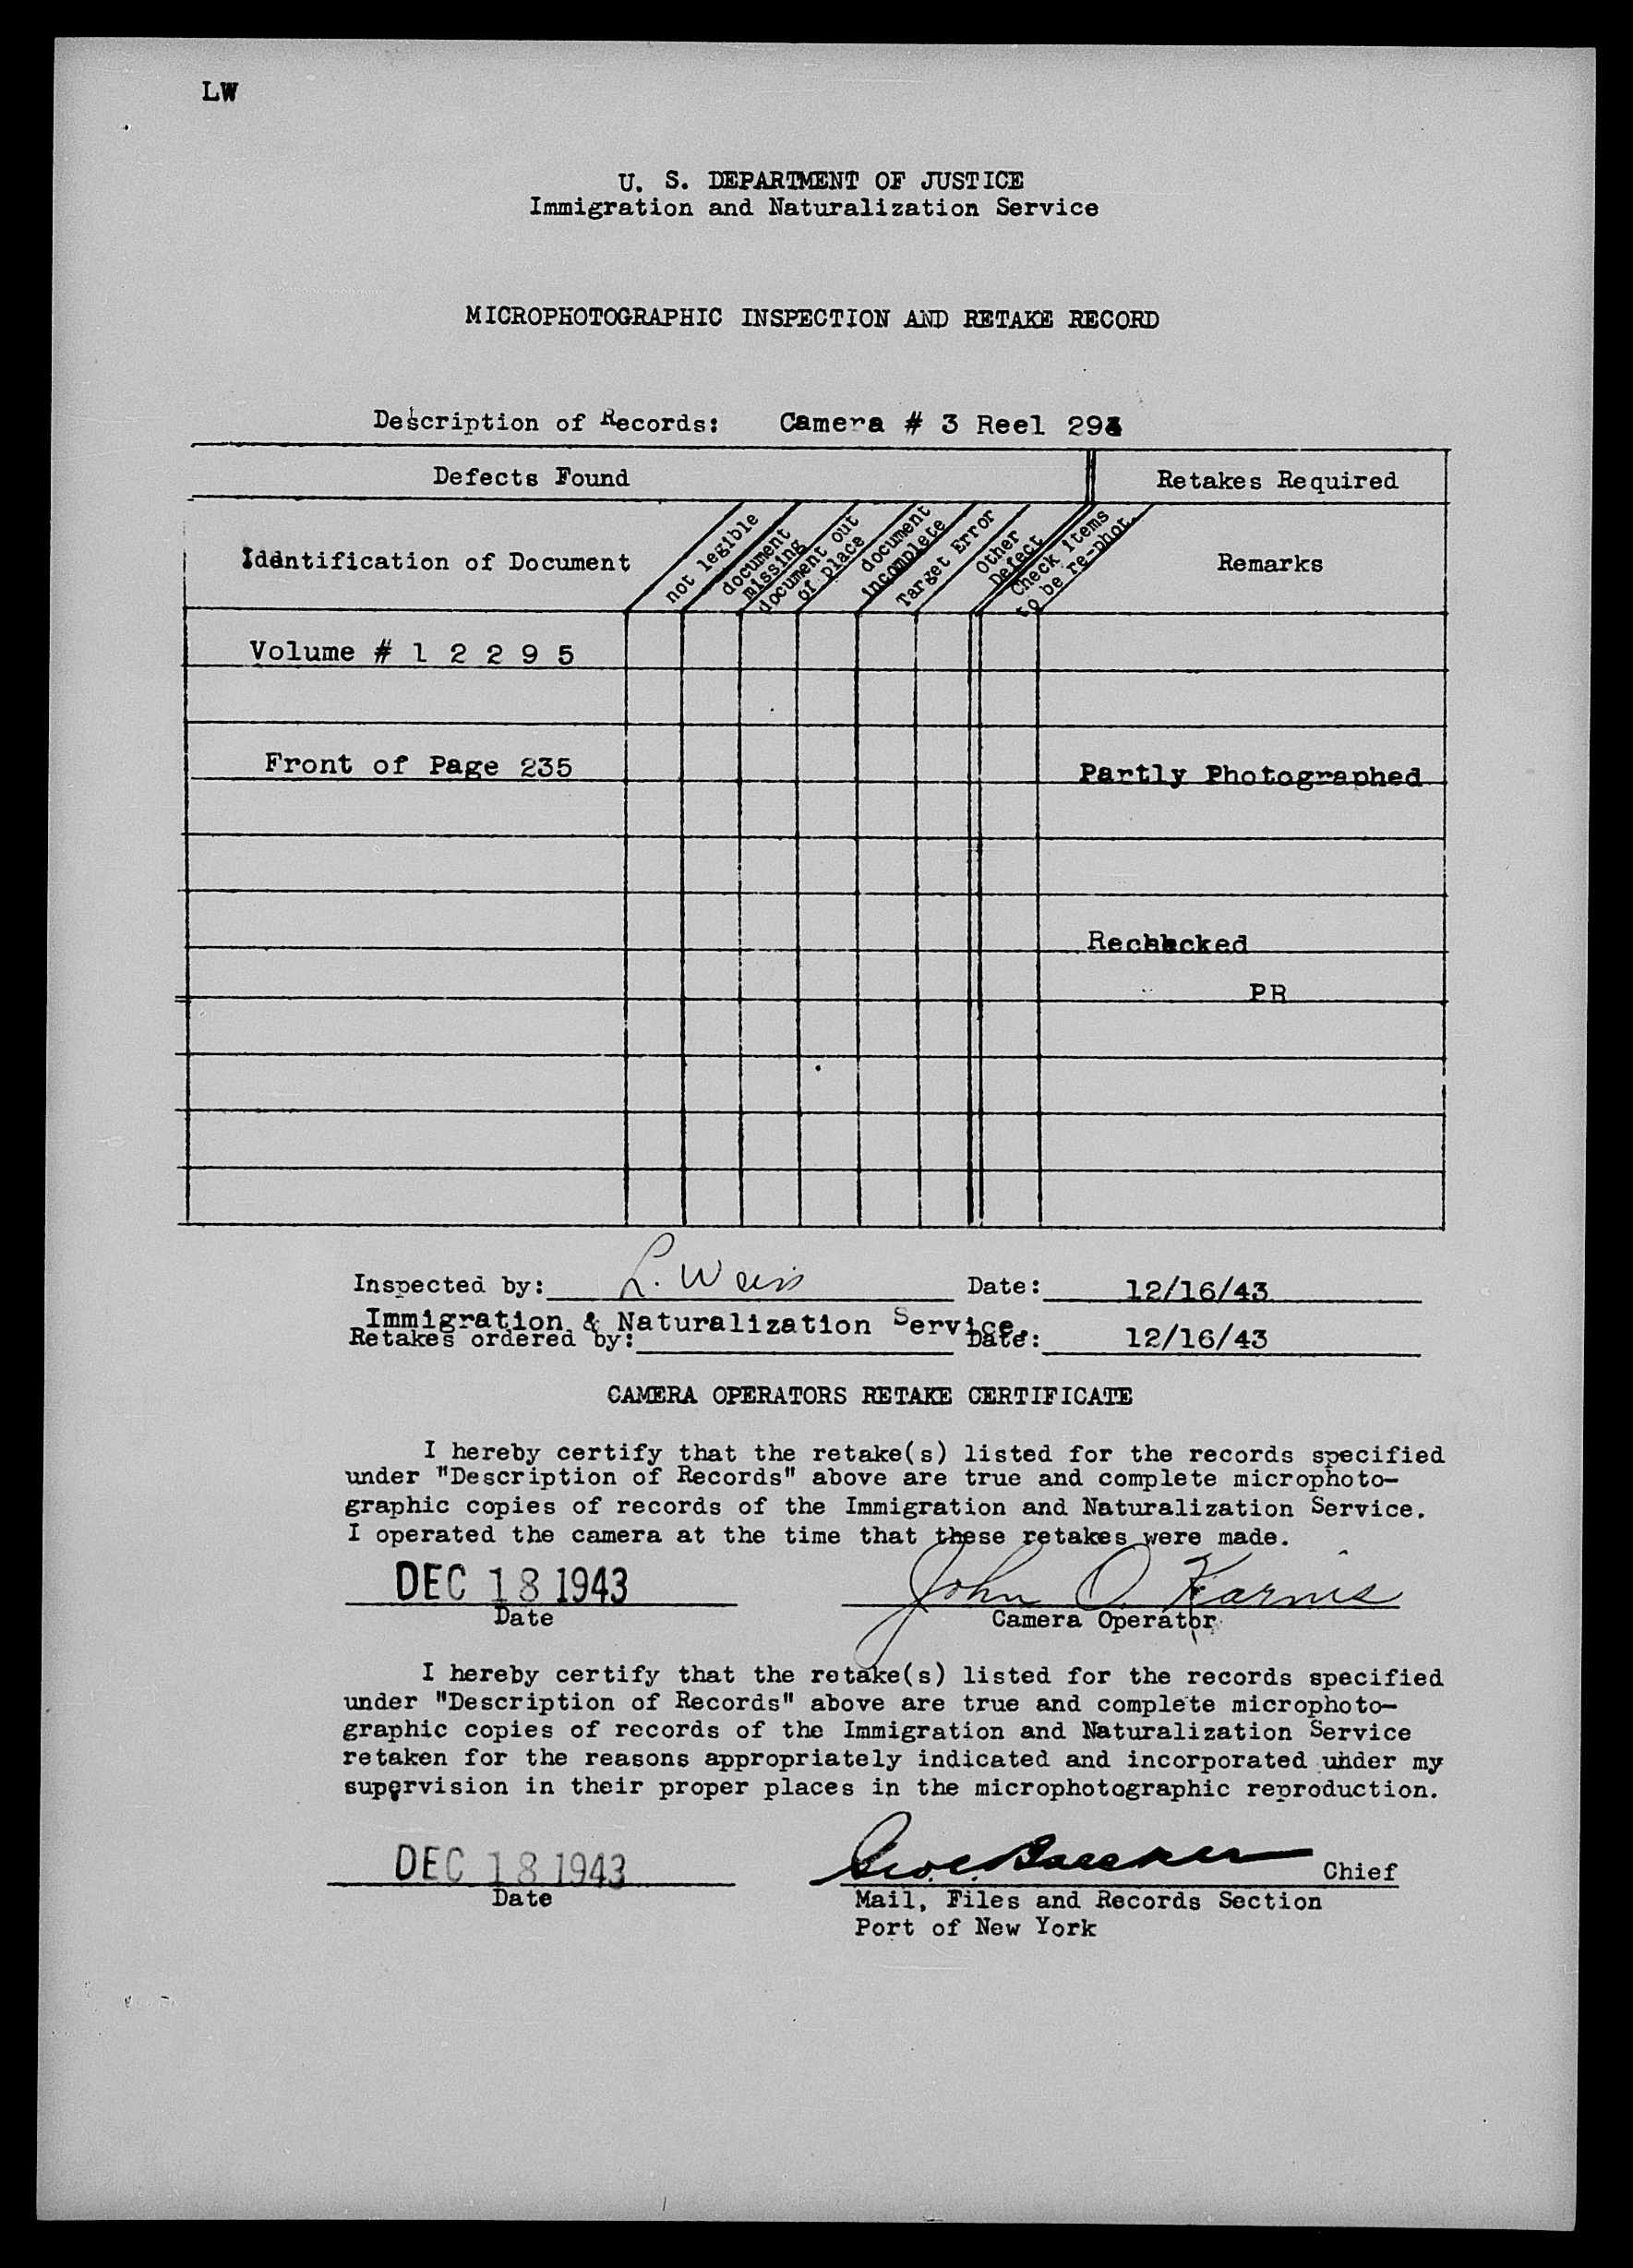 LW
U. S. DEPARTMENT OF JUSTICE
Immigration and Naturalization Service
MICROPHOTOGRAPHIC INSPECTION AND RETAKE RECORD
Description of Records: Camera # 3 Reel
Defects Found
Retakes Required
Identification of Document
not legible
document missing
document out of place
document incomplete
Target Error
Other Defect
Check items to be re-phot.
Remarks
Volume # 1 2 2 9 5
Front of Page 235
Partly Photographed
Rechecked
PR
Inspected by: L. Weiss Date: 12/16/43
Immigration & Naturalization Service.
Retakes ordered by: Date: 12/16/43
CAMERA OPERATORS RETAKE CERTIFICATE
I hereby certify that the retake(s) listed for the records specified
under "Description of Records" above are true and complete microphoto-
graphic copies of records of the Immigration and Naturalization Service.
I operated the camera at the time that these retakes were made.
DEC 18 1943 John O. Karnis
Date Camera Operator
I hereby certify that the retake(s) listed for the records specified
under "Description of Records" above are true and complete microphoto-
graphic copies of records of the Immigration and Naturalization Service
retaken for the reasons appropriately indicated and incorporated under my
supervision in their proper places in the microphotographic reproduction.
DEC 18 1943 Chief
Date Mail, Files and Records Section
Port of New York